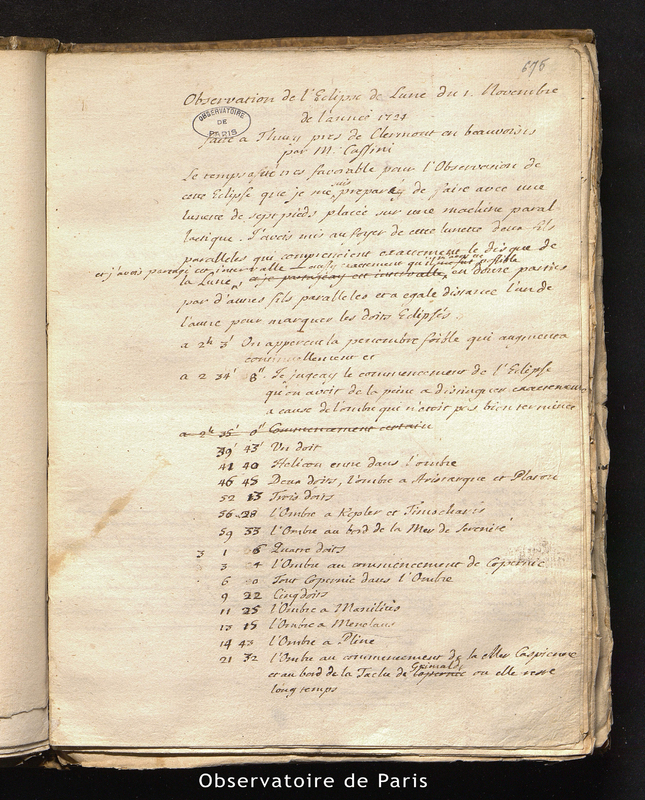 676
Observation de l'Eclipse de Lune du 1. Novembre
de l'année 1724
OBSERVATOIRE
DE
PARIS
faite a Thury pres de Clermont en beauvoisis
par M. Cassini
Le temps a été tres favorable pour l'Observation de
cette Eclipse que je me suis préparé de faire avec une
lunette de sept pieds placée sur une machine paral
lactique. J'avois mis au foyer de cette lunette deux fils
paralleles qui comprenoient exactement le disque de
et j'avois partagé cet intervalle
la Lune, et je partageay cet intervalle, en douze parties
par d'autres fils paralleles et a egale distance l'un de
l'autre pour marquer les doits Eclipsés.
a 2h 3' On apperçut la penombre foible qui augmenta
continuellement et
a 2 34' 8". Je jugeay le commencement de l'Eclipse
qu'on avoit de la peine a distinguer exactement
a cause de l'ombre qui n'étoit pas bien terminée
a 2h 35' 0" Commencement certain
39' 43' Un doit
41 40 Helicon entre dans l'ombre
46 45 Deux doits, l'ombre a Aristarque et Platon
52 13 Trois doits
56 28 l'Ombre a Kepler et Timocharis
59 33 l'Ombre au bord de la Mer de Serenité
3 1 6 Quatre doits
3 4 l'Ombre au commencement de Copernic
6 0 Tout Copernic dans l'Ombre
9 22 Cinq doits
11 25 l'Ombre a Manilius
13 15 l'Ombre a Menelaus
14 43 l'Ombre a Pline
21 32 l'Ombre au commencement de la Mer Caspienne
Grimaldi
et au bord de la Tache de Copernic ou elle reste
long temps
Observatoire de Paris